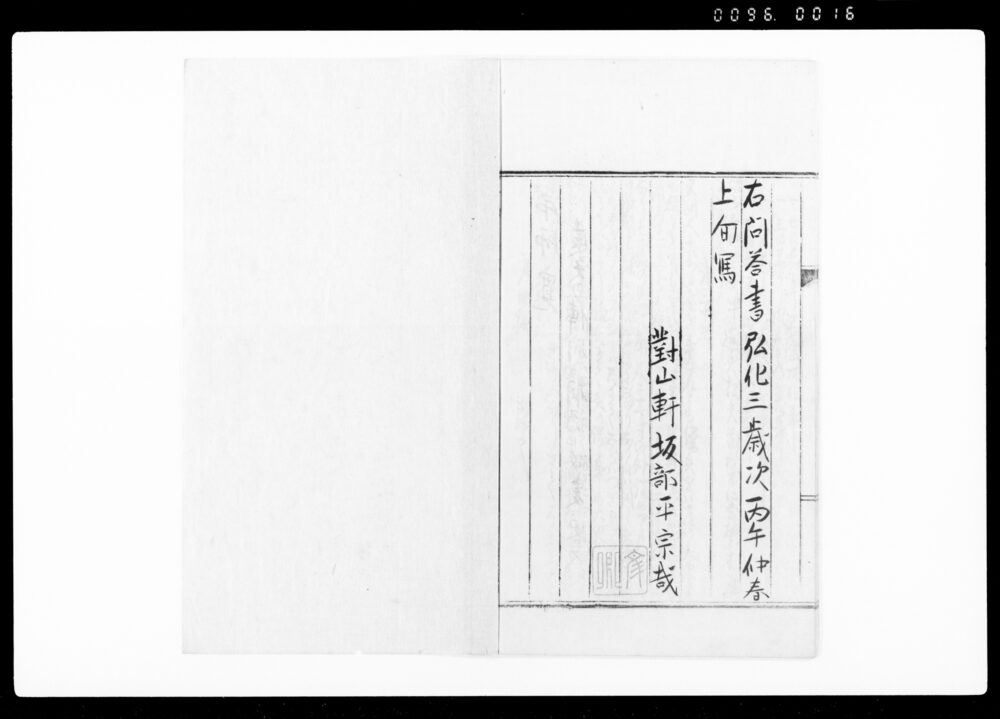 0096. 0016
右问荅書弘化三歳次丙午仲春
上旬寫
對山軒坂部平宗哉